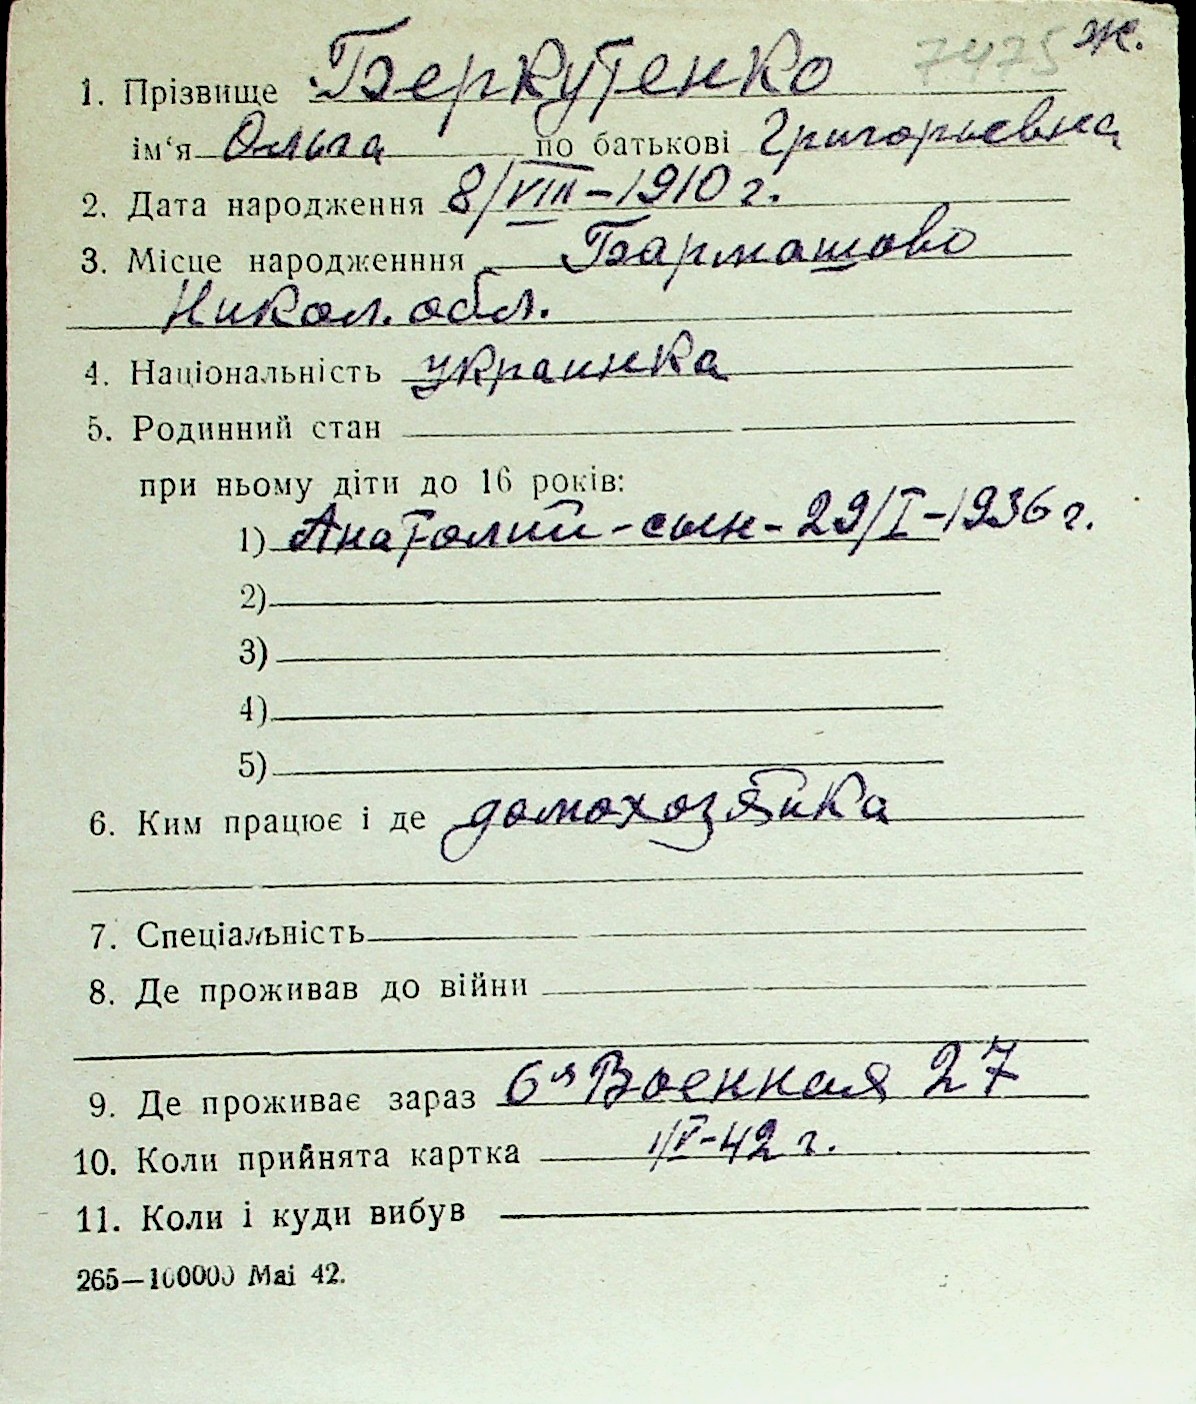 7475 ж.
1. Прізвище Беркутенко
ім‘я Ольга по батькові Григорьевна
2. Дата народження 8/VIII–1910 г.
3. Місце народженння Бармашово
Никол. обл.
4. Національність украинка
5. Родинний стан
при ньому діти до 16 років:
1) Анатолий – сын – 29/I–1936 г.
2)
3)
4)
5)
6. Ким працює і де домохозяйка
7. Спеціальність
8. Де проживав до війни
9. Де проживає зараз 6ая Военная 27
10. Коли прийнята картка 1/V–42 г.
11. Коли і куди вибув
265—100000 Mai 42.